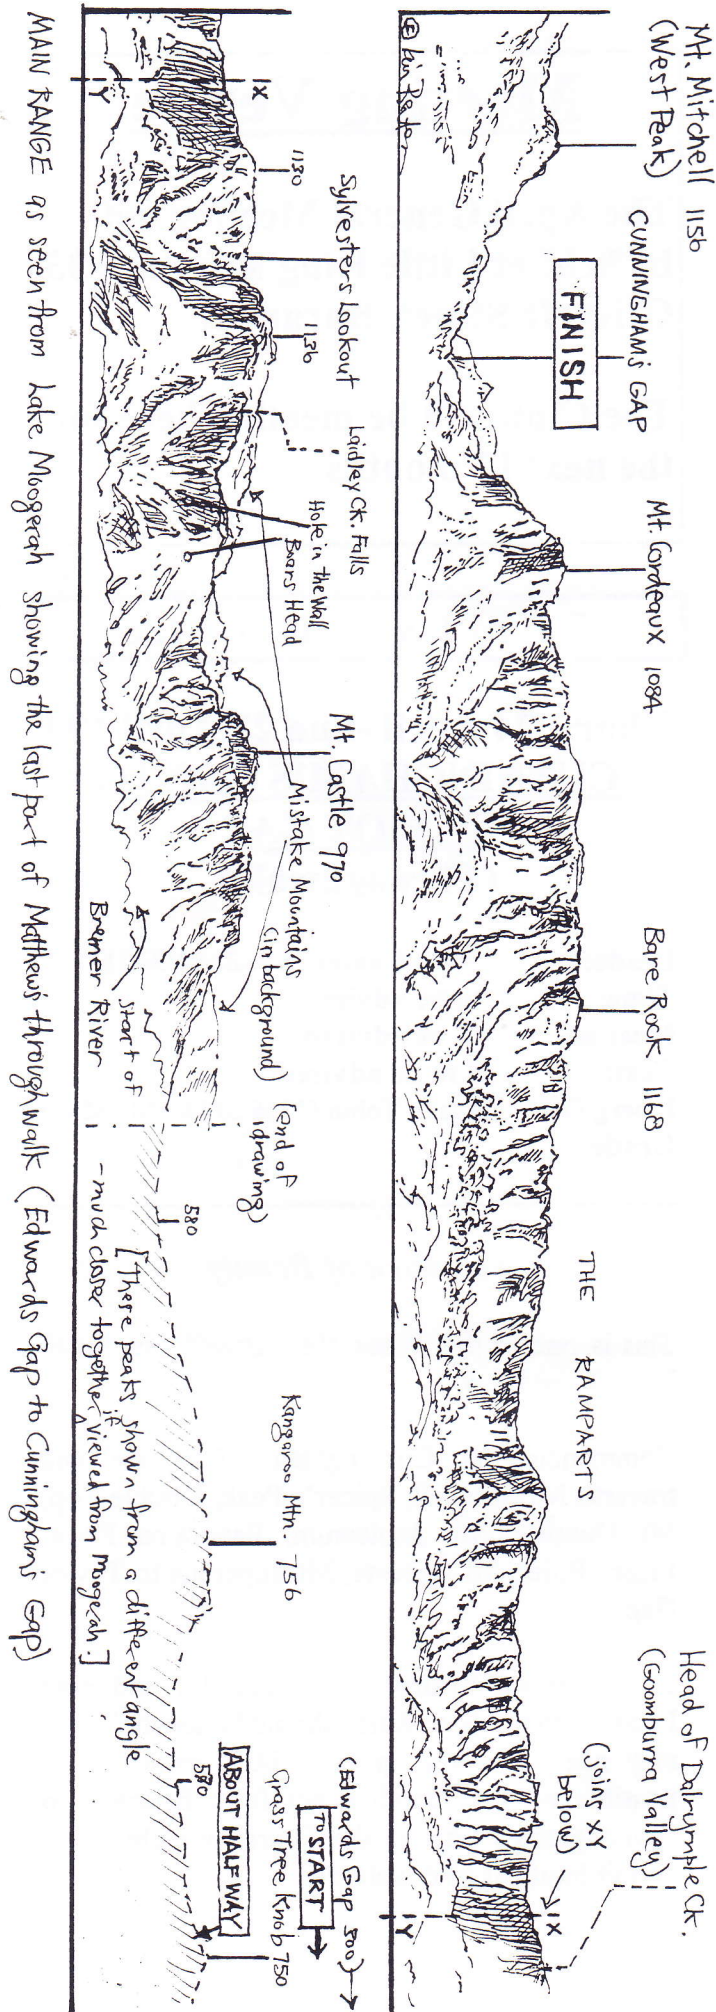 Mt. Mitchell 1156
(West Peak)
CUNNINGHAM'S GAP
FINISH
Mt. Cordeaux 1084
Bare Rock 1168
THE RAMPARTS
Head of Dalrymple Ck.
(Goomburra Valley)
(joins XY
below)
X
Y
X
Y
1130
Sylvesters Lookout
1136
Laidley Ck. Falls
Hole in the Wall
Boars Head
Mt Castle 970
Mistake Mountains
(in background)
start of
Bremer River
(end of
drawing)
580
Kangaroo Mtn. 756
[These peaks shown from a different angle
- much closer together if viewed from Moogerah.]
580
ABOUT HALF WAY
Grass Tree Knob 750
TO START
(Edwards Gap 500)
MAIN RANGE as seen from Lake Moogerah showing the last part of Matthews throughwalk (Edwards Gap to Cunningham's Gap)